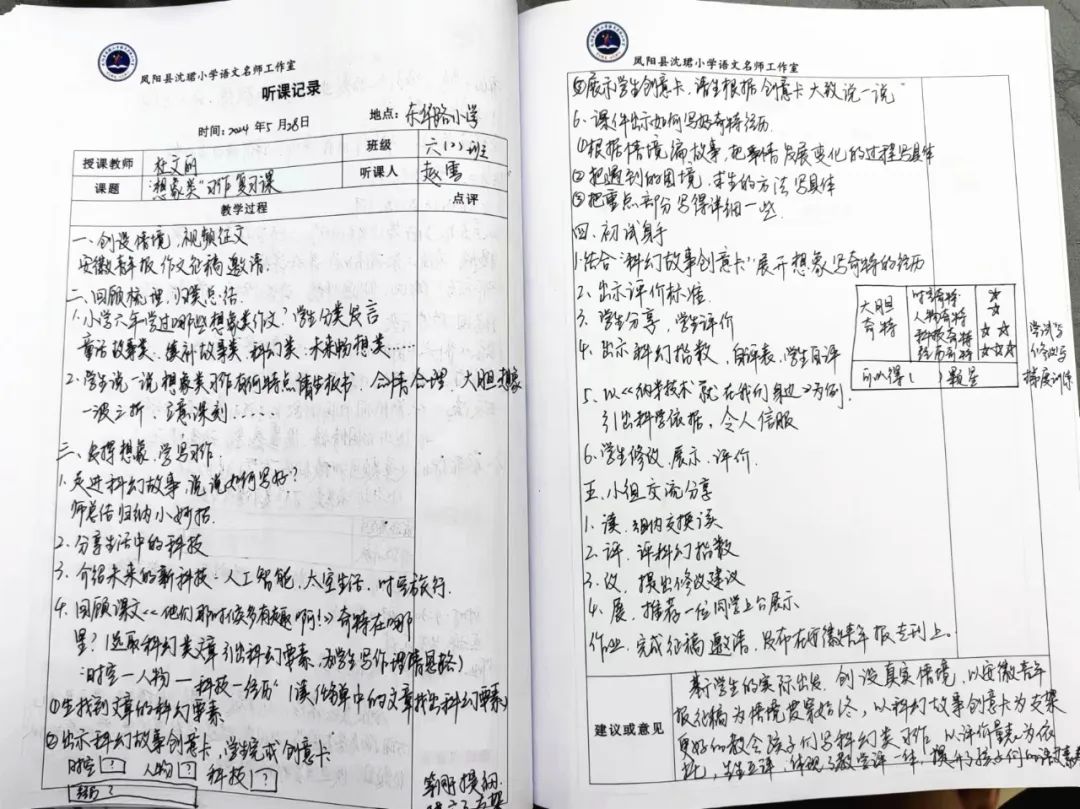 凤阳县沈珺小学语文名师工作室
听课记录
时间：2024年5月28日 地点：东华路小学
授课教师 杜文丽 班级 六(2)班
课题 "想象类"习作复习课 听课人 赵雪
教学过程 点评
一、创设情境，视频征文
安徽青年报作文征稿邀请.
二、回顾梳理，归类总结.
1.小学六年学过哪些想象类作文？学生分类发言
童话故事类、续补故事类、科幻类、未来畅想类……
2.学生说一说想象类习作有何特点请生板书，合情合理，大胆想象
一波三折.立意深刻……
三、发挥想象，学写习作.
1.走进科幻故事，说说如何写好？
师总结归纳小妙招.
2.分享生活中的科技
3.介绍未来的新科技：人工智能、太空生活、时空旅行.
4.回顾课文《他们那时候多有趣啊！》奇特在哪
里？（选取科幻类文章引出科幻要素，为学生写作
"时空—人物—科技—经历"（读清单中的文章找出科幻要素）
①生找到文章的科幻要素
②出示科幻故事创意卡，学生完成创意卡
时空？ 人物？ 科技？
经历？
凤阳县沈珺小学语文名师工作室
③展示学生创意卡.请生根据创意卡大致说一说"
6.课件出示如何写好奇特经历.
①根据情境编故事，把事情发展变化的过程写具体
②把遇到的困境、求生的方法写具体
③把重点部分写得详细一些.
四、初试身手
1.结合"科幻故事创意卡"展开想象写奇特的经历
2.出示评价标准.
大胆奇特 时空奇特 人物奇特 科技奇特 经历奇特
可以得（ ）颗星
尝试写
修改写
梯度训练
3.学生分享，学生评价
4.出示科幻指数，自评表，学生自评
5.以《纳米技术就在我们身边》为例.
引出科学依据，令人信服
6.学生修改、展示、评价.
五、小组交流分享
1.读.组内交换读
2.评.评科幻指数
3.议.提出修改建议
4.展.推荐一位同学上台展示
作业.完成征稿邀请，发布在安徽青年报专刊上。
建议或意见
基于学生的实际出发.创设真实情境，以安徽青年
报征稿为情境贯穿始终，以科幻故事创意卡为支架
更好的教会孩子们写科幻类习作.以评价量表为依
托，生生互评，体现了教学评一体，提升了孩子们的